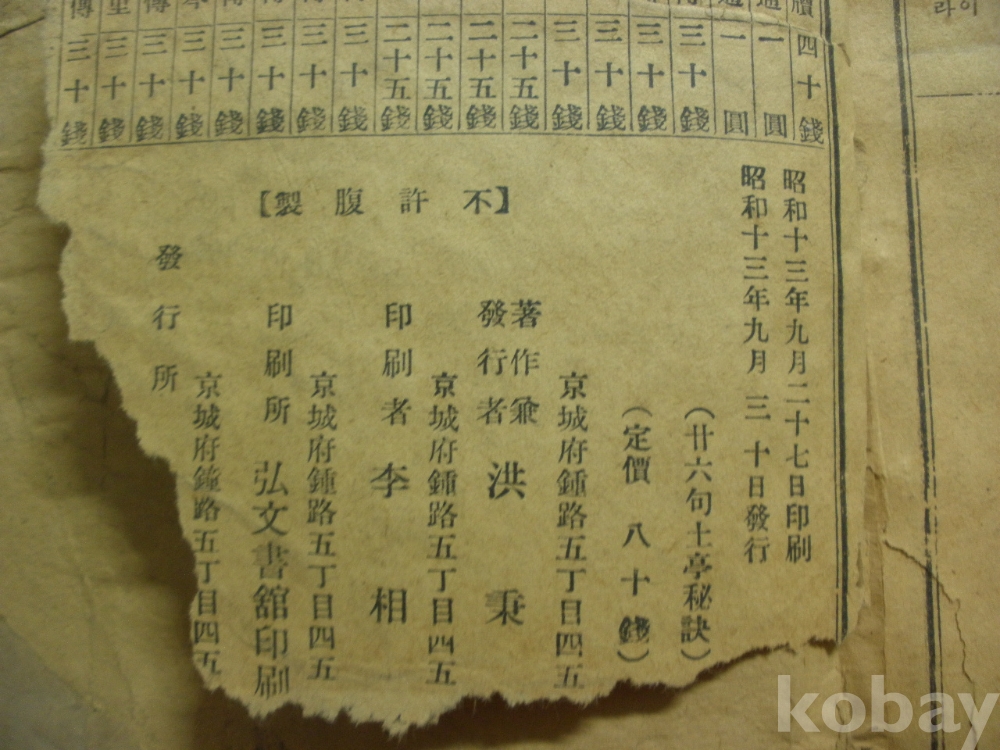 라이
牘四十錢
一圓
一圓
三十錢
三十錢
三十錢
三十錢
二十五錢
二十五錢
二十五錢
二十五錢
三十錢
三十錢
三十錢
三十錢
三十錢
傳三十錢
里三十錢
傳三十錢
昭和十三年九月二十七日印刷
昭和十三年九月三十日發行
(廿六句土亭秘訣)
(定價 八十錢)
【不許腹製】
京城府鍾路五丁目四五
著作兼
發行者 洪秉
京城府鍾路五丁目四五
印刷者 李相
京城府鍾路五丁目四五
印刷所 弘文書舘印刷
京城府鐘路五丁目四五
發行所
kobay